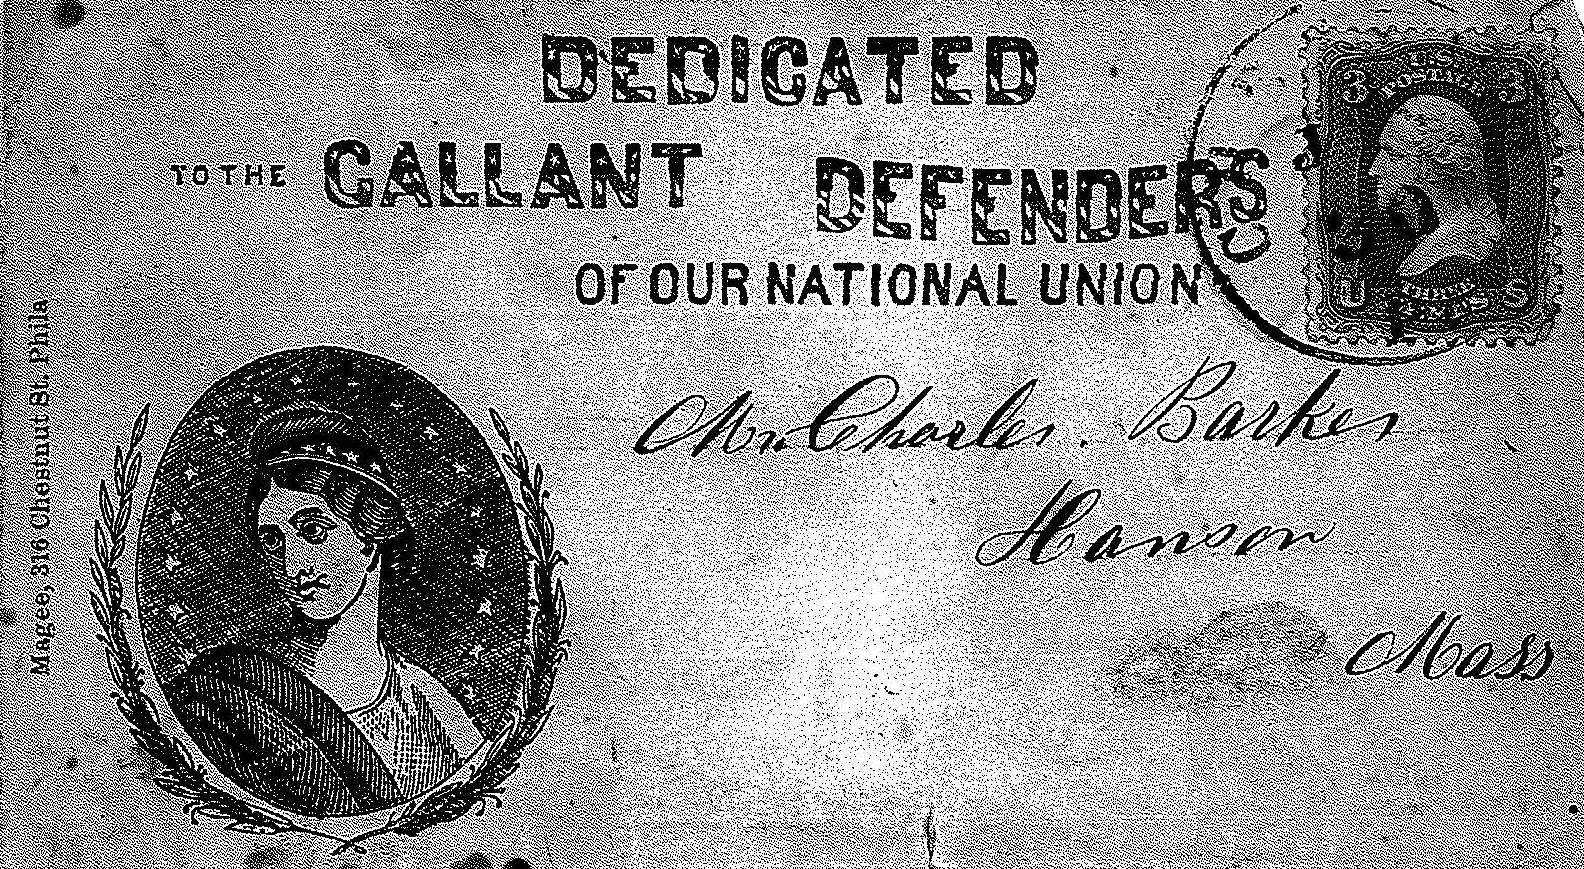 DEDICATED
TO THE GALLANT DEFENDERS
OF OUR NATIONAL UNION
Mr. Charles. Barker
Hanson
Mass
Magee, 316 Chestnut St. Phila
3 U.S. 3
POSTAGE
U S